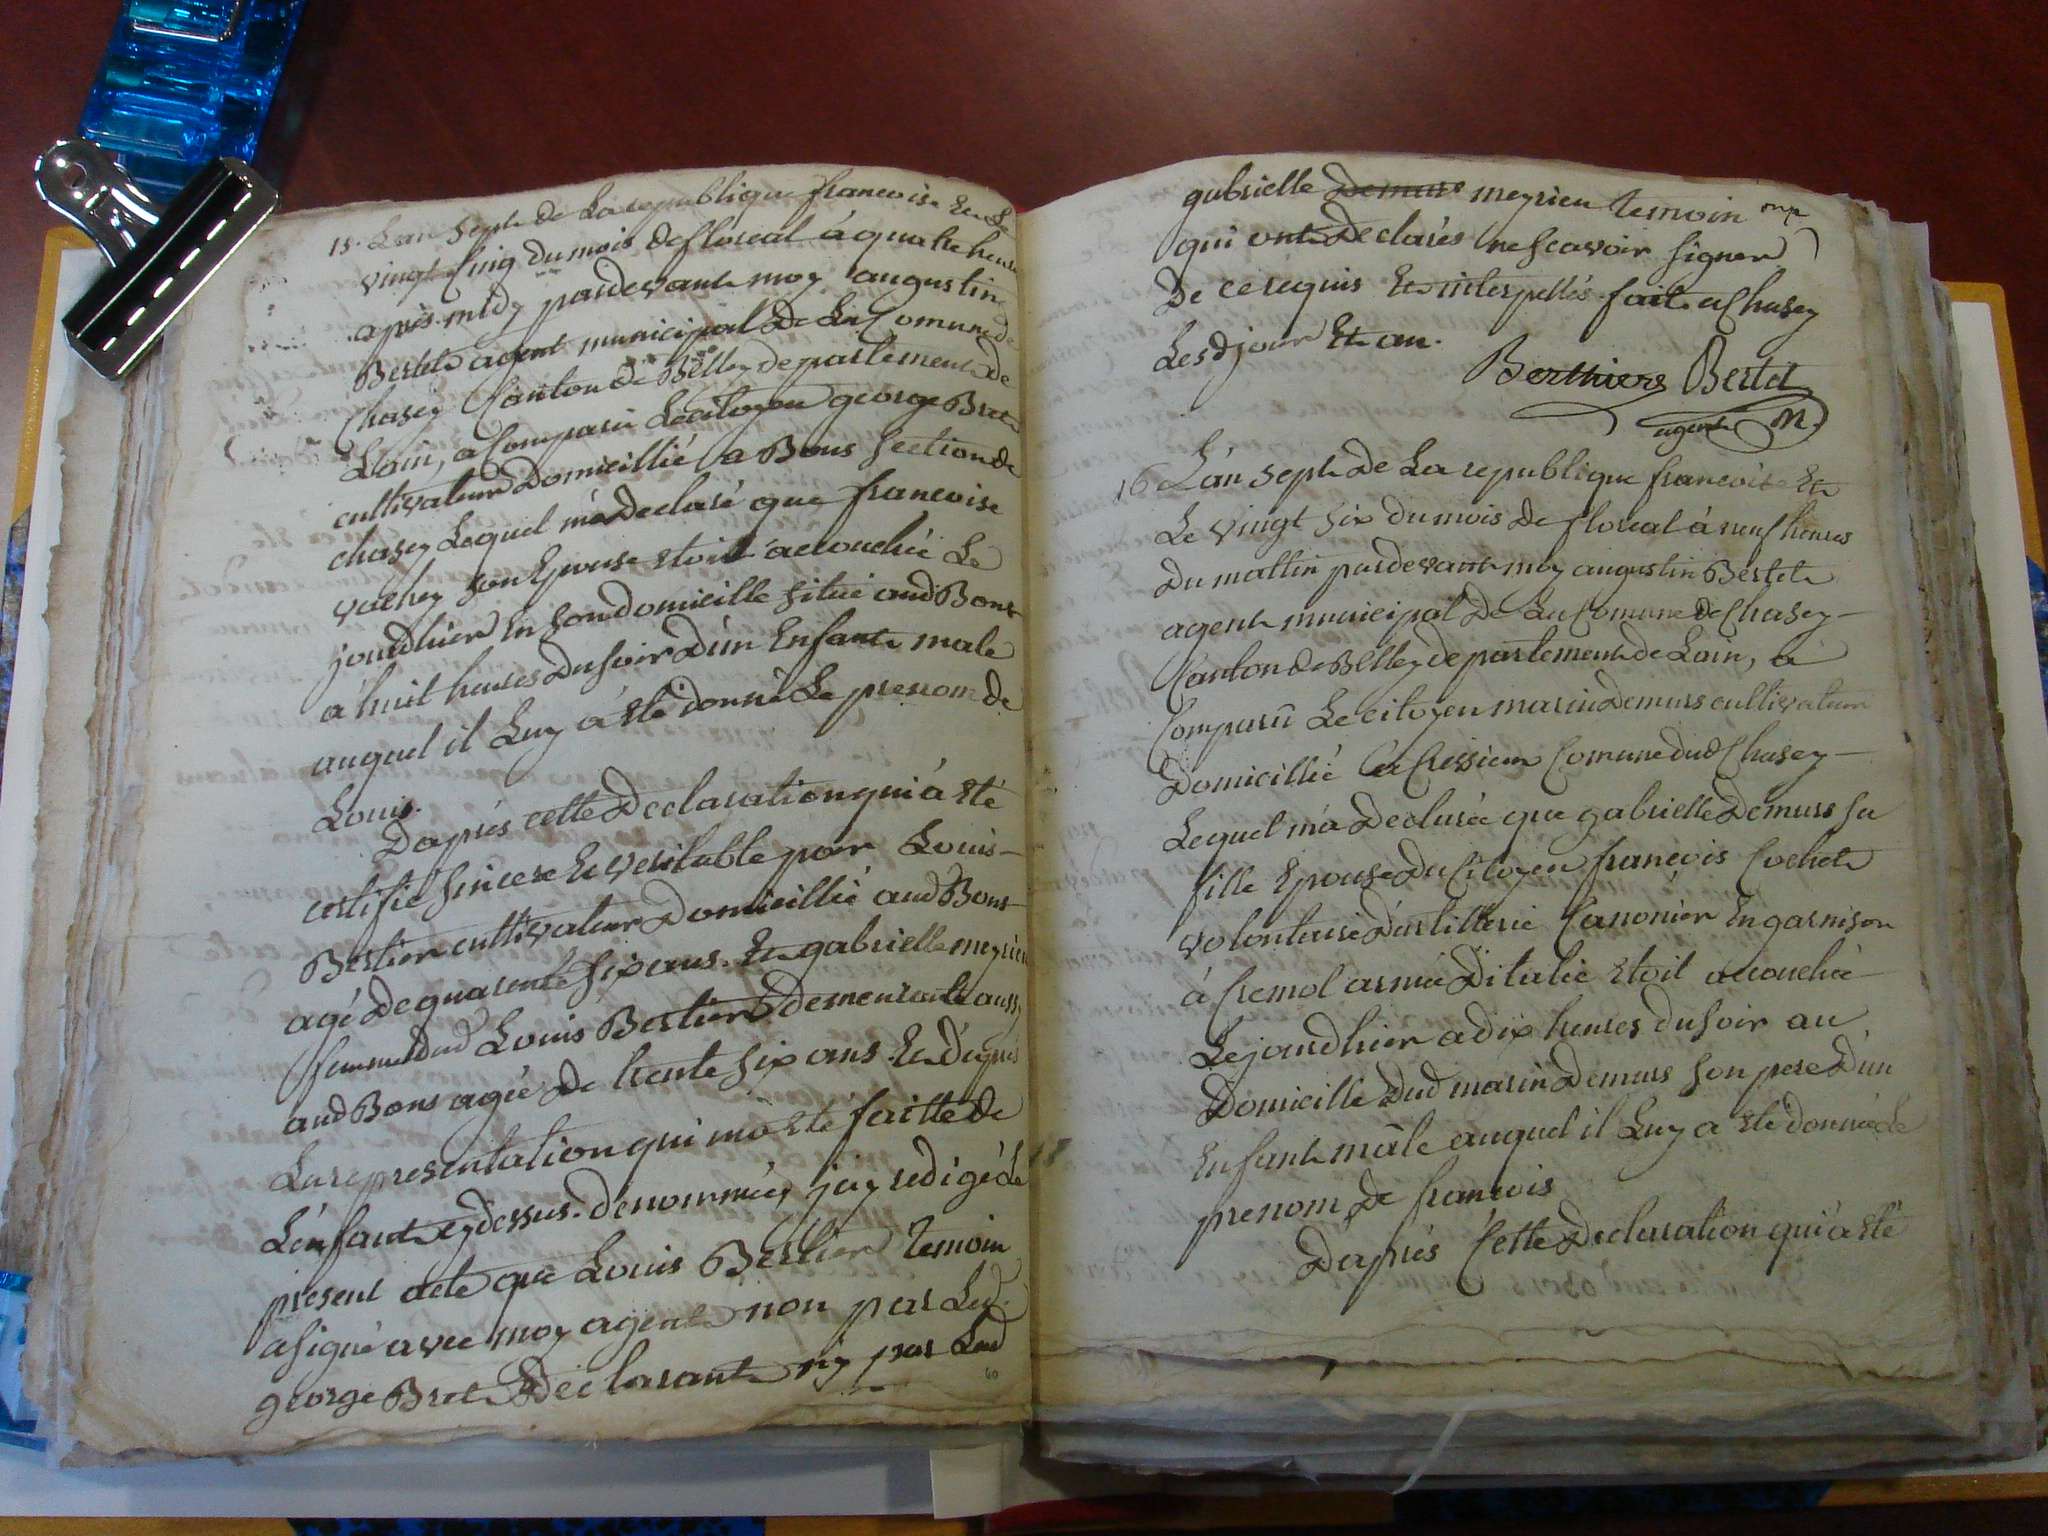 15. L'an sept de La republique francoise Et Le
vingt Cinq du mois de floreal á quatre heures
aprés midy pardevant moy augustin
Bertet agent municipal De La Comune de
Chasey Canton de Belley departement de
L'ain, a Comparu Le citoyen george Bret
cultivateur Domicillié a Bons Section de
chasey Lequel m'a Declaré que francoise
vachey son Epouse etoit accouchée Le
jourdhier En son domicille situé aud Bons
á huit heures du soir D'un Enfant male
auquel il Luy á eté donné Le prenom de
Louis.
D'aprés cette Declaration qui á eté
certifié sincere Et veritable par Louis
Bertier cultivateur Domicillié aud Bons
agé De quarente six ans. Et gabrielle meyrieu
femme dud Louis Bertier Demeurante aussy
aud Bons agée De trente six ans. Et d'aprés
La representation qui m'a eté faitte de
L'enfant cydessus denommé, j'ay redigé Le
present acte que Louis Bertier temoin
a signé avec moy agent non par Led.
george Bret Declarant ny par Lad
60
gabrielle Demurs meyrieu temoin
qui ont Declarés ne scavoir signer
De ce requis Et interpellés. fait a Chasey
Lesd jour Et an.
Berthiers Bertet
agent M.
16 L'an sept De La republique francoise Et
Le vingt six du mois De floreal á neuf heures
Du mattin pardevant moy augustin Bertet
agent municipal De La Comune De Chasey
Canton de Belley departement de L'ain, a
Comparû Le citoyen marin Demurs cultivateur
Domicillié a Cressieu Comune dud Chasey
Lequel m'á Declaré que gabrielle Demurs sa
fille Epouse Du Citoyen francois Cochet
volontaire D'artillerie Canonier En garnison
á Cremol armée D'italie etoit accouchée
Le jourdhier a dix heures du soir au
Domicille Dud marin Demurs son pere D'un
Enfant mâle auquel il Luy a eté donné Le
prenom De francois
D'aprés Cette Declaration qui á eté